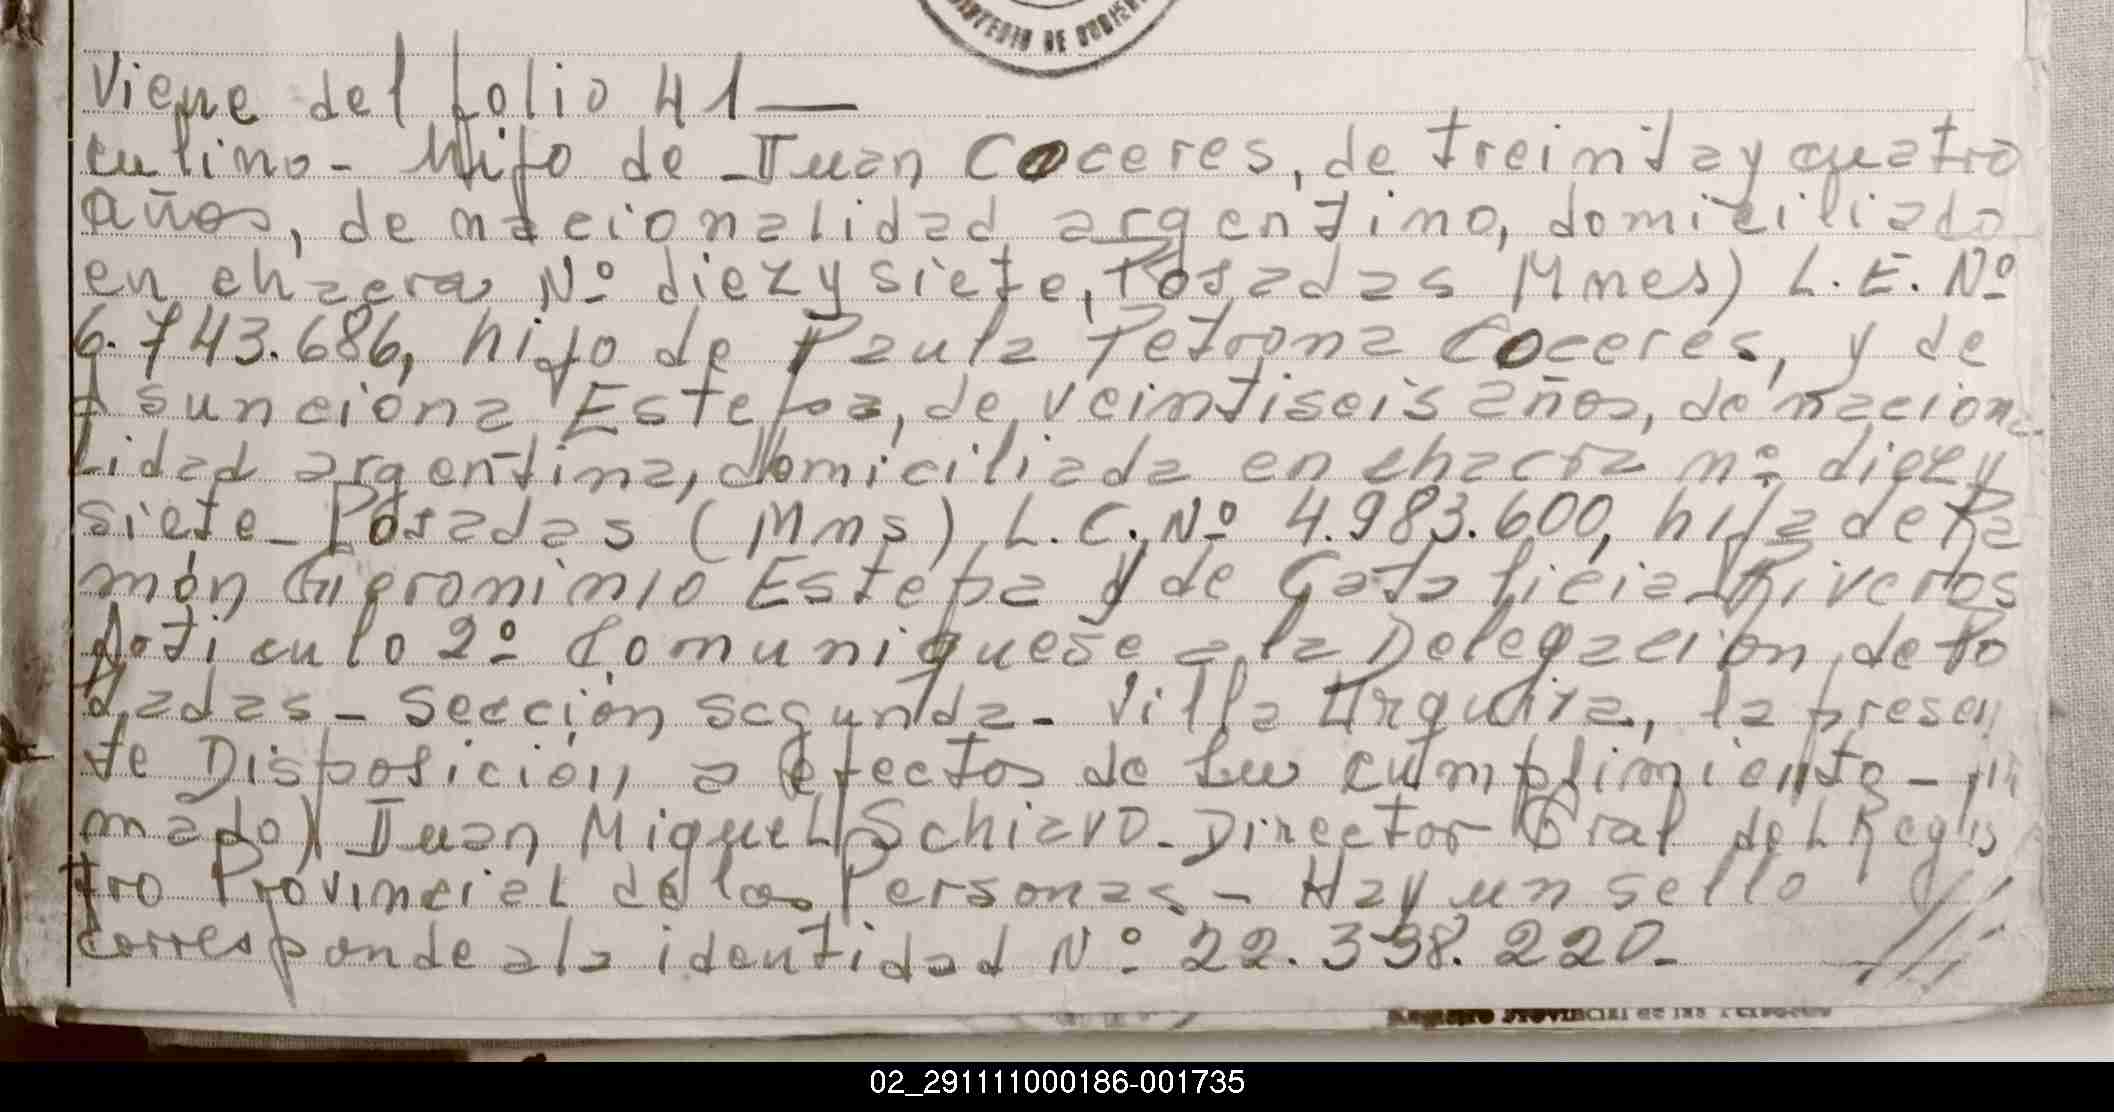 Viene del folio 41 —
culino - hijo de Juan Coceres, de treinta y cuatro
años, de nacionalidad argentino, domiciliado
en chacra Nº diez y siete, Posadas Mnes) L.E. Nº
6.743.686, hijo de Paula Petrona Coceres, y de
Asunciona Estepa, de veintiseis años, de naciona
lidad argentina, domiciliada en chacra nº diez y
siete - Posadas (Mns) L.C. Nº 4.983.600, hija de Ra
món Gieronimio Estepa y de Riveros
Articulo 2º Comuniquese a la Delegación de Po
sadas - Sección segunda - Villa Urquiza, la presen
te Disposición, a efectos de su cumplimiento -
mado) Juan Miguel Schiavo - Director Gral del Regis
tro Provincial de las Personas - Hay un sello
corresponde a la identidad Nº 22.338.220 -
Registro Provincial de las Personas
02_291111000186-001735